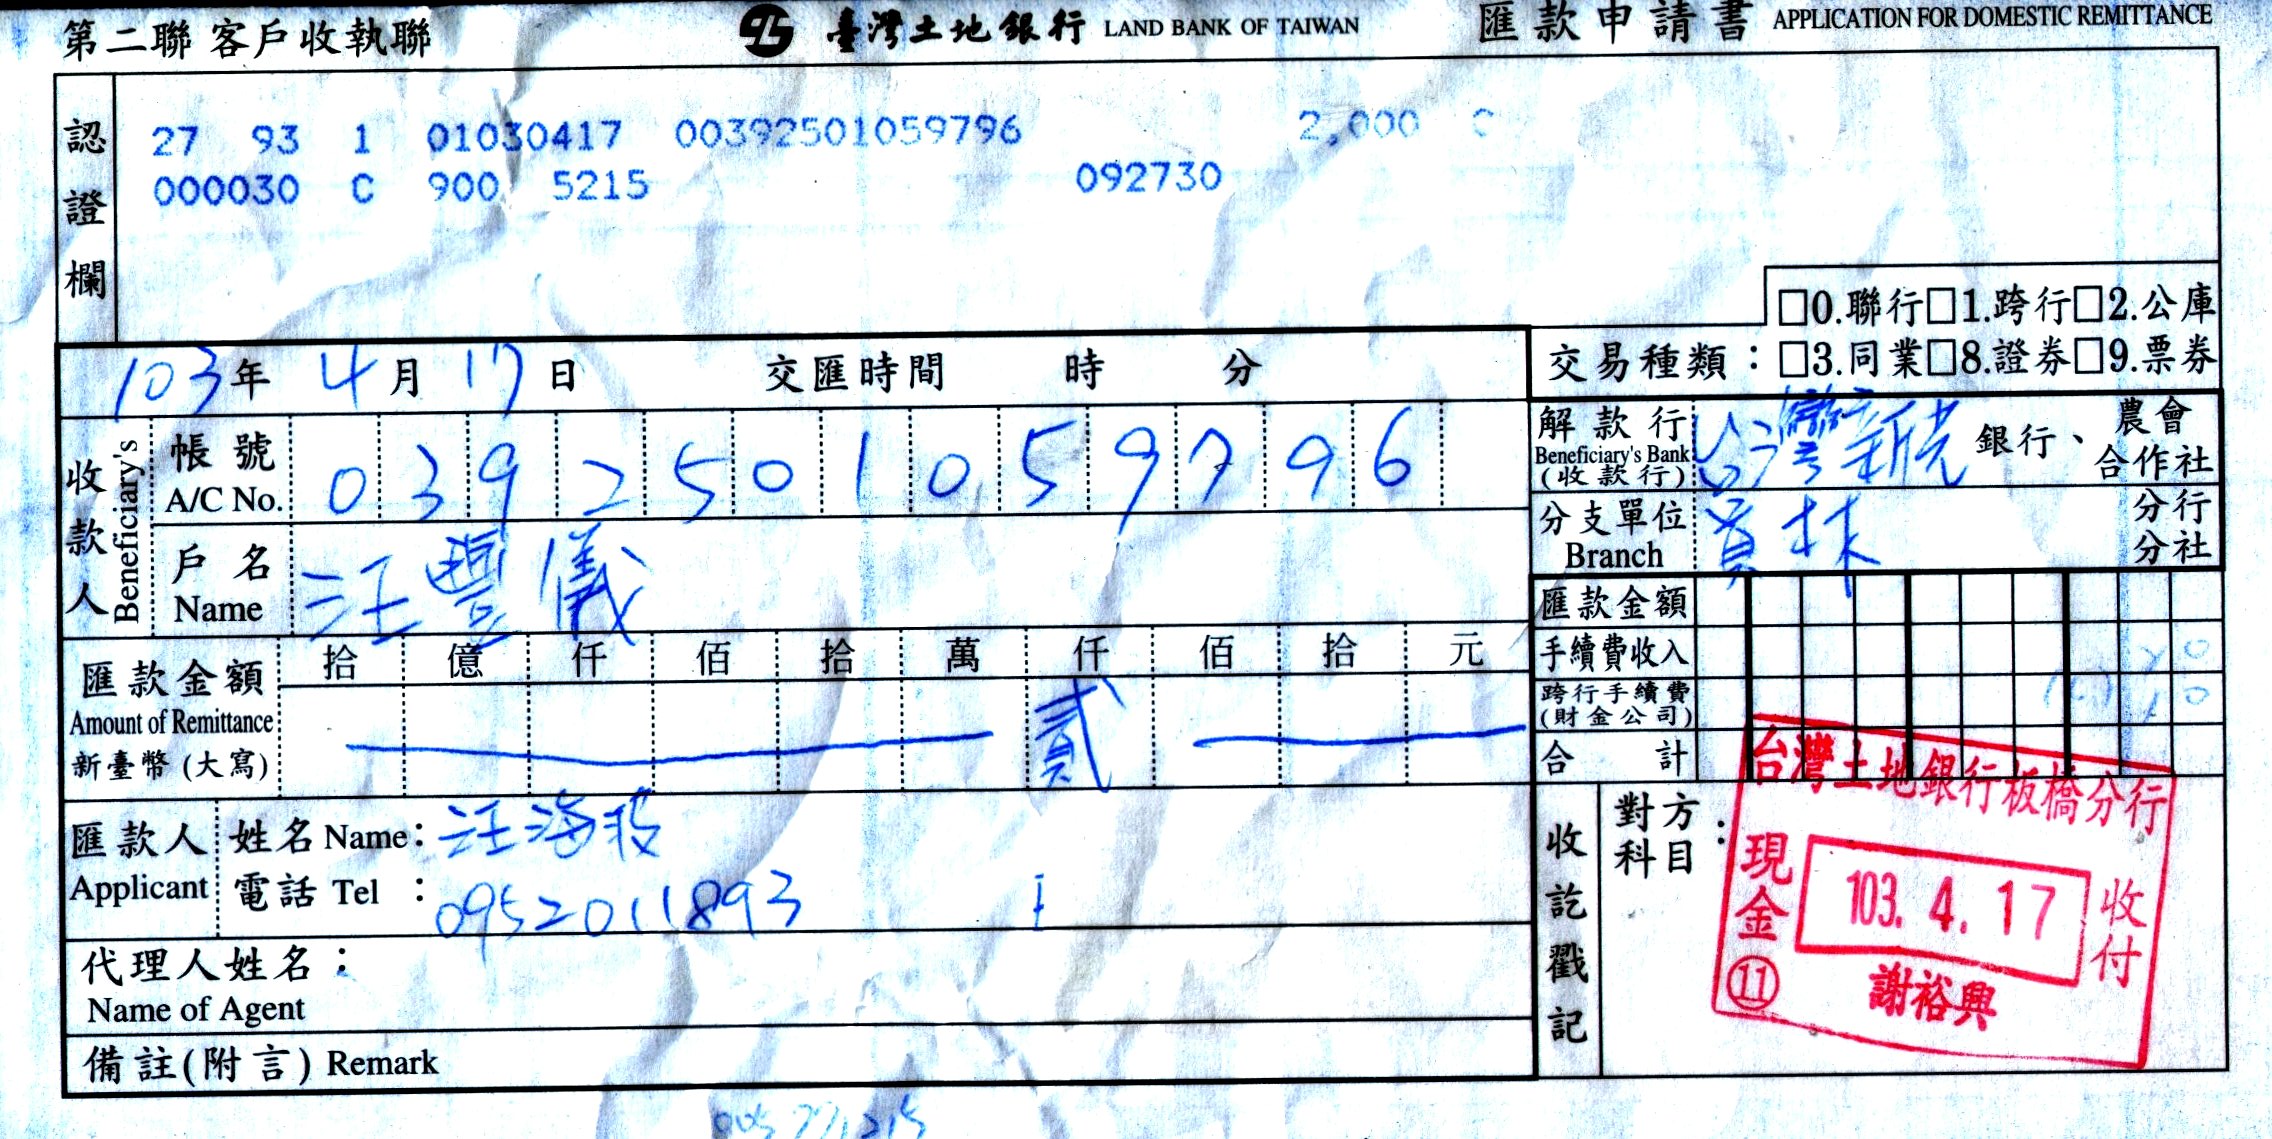 第二聯 客戶收執聯 臺灣土地銀行 LAND BANK OF TAIWAN 匯款申請書 APPLICATION FOR DOMESTIC REMITTANCE
認證欄
27 93 1 01030417 00392501059796 2,000 C
000030 C 900 5215 092730
□0.聯行□1.跨行□2.公庫
交易種類：□3.同業□8.證券□9.票券
103年 4月 17日 交匯時間 時 分
收款人 Beneficiary's
帳號 A/C No. 0392501059796
戶名 Name 汪豐儀
解款行 Beneficiary's Bank (收款行) 台灣新光 銀行、農會 合作社
分支單位 Branch 員林 分行 分社
匯款金額 Amount of Remittance 新臺幣 (大寫)
拾 億 仟 佰 拾 萬 仟 佰 拾 元
貳
匯款金額
手續費收入 20
跨行手續費 (財金公司) 10
合計
匯款人 Applicant
姓名 Name：汪海
電話 Tel：0952011893
代理人姓名：
Name of Agent
備註(附言) Remark
收訖戳記
對方科目：
台灣土地銀行板橋分行
現金 收付
103. 4. 17
⑪ 謝裕興